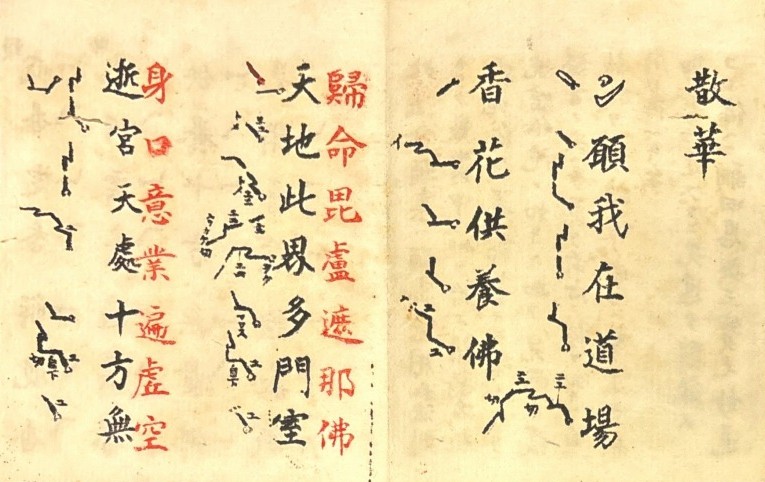 散華
願我在道場
香花供養佛
歸命毘盧遮那佛
天地此界多門室
身口意業遍虛空
逝宮天處十方無